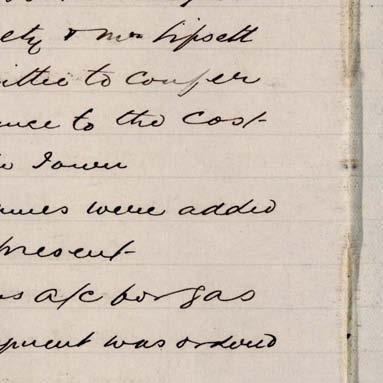 ety & Mr Lipsett
mittee to confer
ence to the cost
Town
names were added
present
a/c for gas
payment was ordered